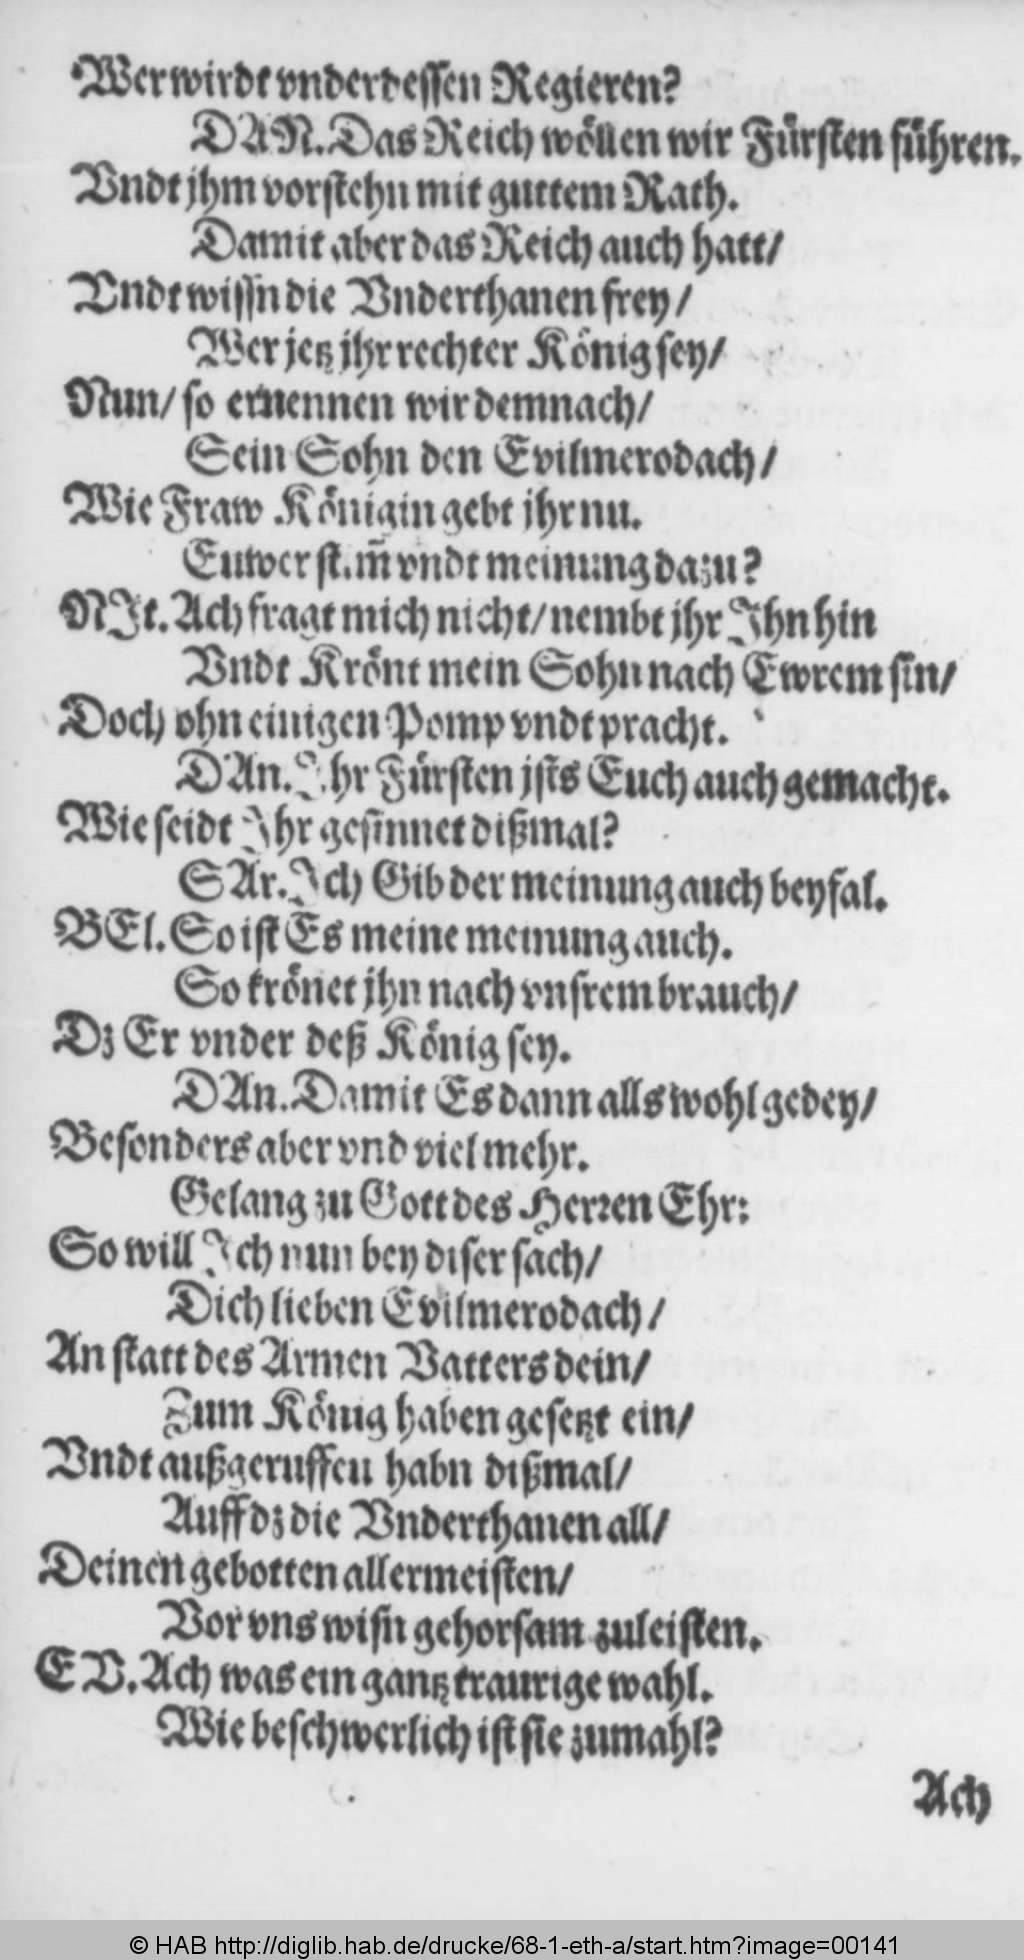 Wer wirdt vnderdessen Regieren?
DAN. Das Reich wöllen wir Fürsten führen.
Vndt jhm vorstehn mit guttem Rath.
Damit aber das Reich auch hatt/
Vndt wissn die Vnderthanen frey/
Wer jetz jhr rechter König sey/
Nun/ so ernennen wir demnach/
Sein Sohn den Evilmerodach/
Wie Fraw Königin gebt jhr nu.
Euwer stim̄ vndt meinung dazu?
NJt. Ach fragt mich nicht/ nembt jhr Jhn hin
Vndt Krönt mein Sohn nach Ewrem sin/
Doch ohn einigen Pomp vndt pracht.
DAn. Jhr Fürsten jsts Euch auch gemacht.
Wie seidt Jhr gesinnet dißmal?
SAr. Jch Gib der meinung auch beyfal.
BEl. So ist Es meine meinung auch.
So krönet jhn nach vnsrem brauch/
Dz Er vnder deß König sey.
DAn. Damit Es dann alls wohl gedey/
Besonders aber vnd viel mehr.
Gelang zu Gott des Herren Ehr:
So will Jch nun bey diser sach/
Dich lieben Evilmerodach/
An statt des Armen Vatters dein/
Zum König haben gesetzt ein/
Vndt außgeruffen habn dißmal/
Auff dz die Vnderthanen all/
Deinen gebotten allermeisten/
Vor vns wisn gehorsam zuleisten.
EV. Ach was ein gantz traurige wahl.
Wie beschwerlich ist sie zumahl?
Ach
© HAB http://diglib.hab.de/drucke/68-1-eth-a/start.htm?image=00141